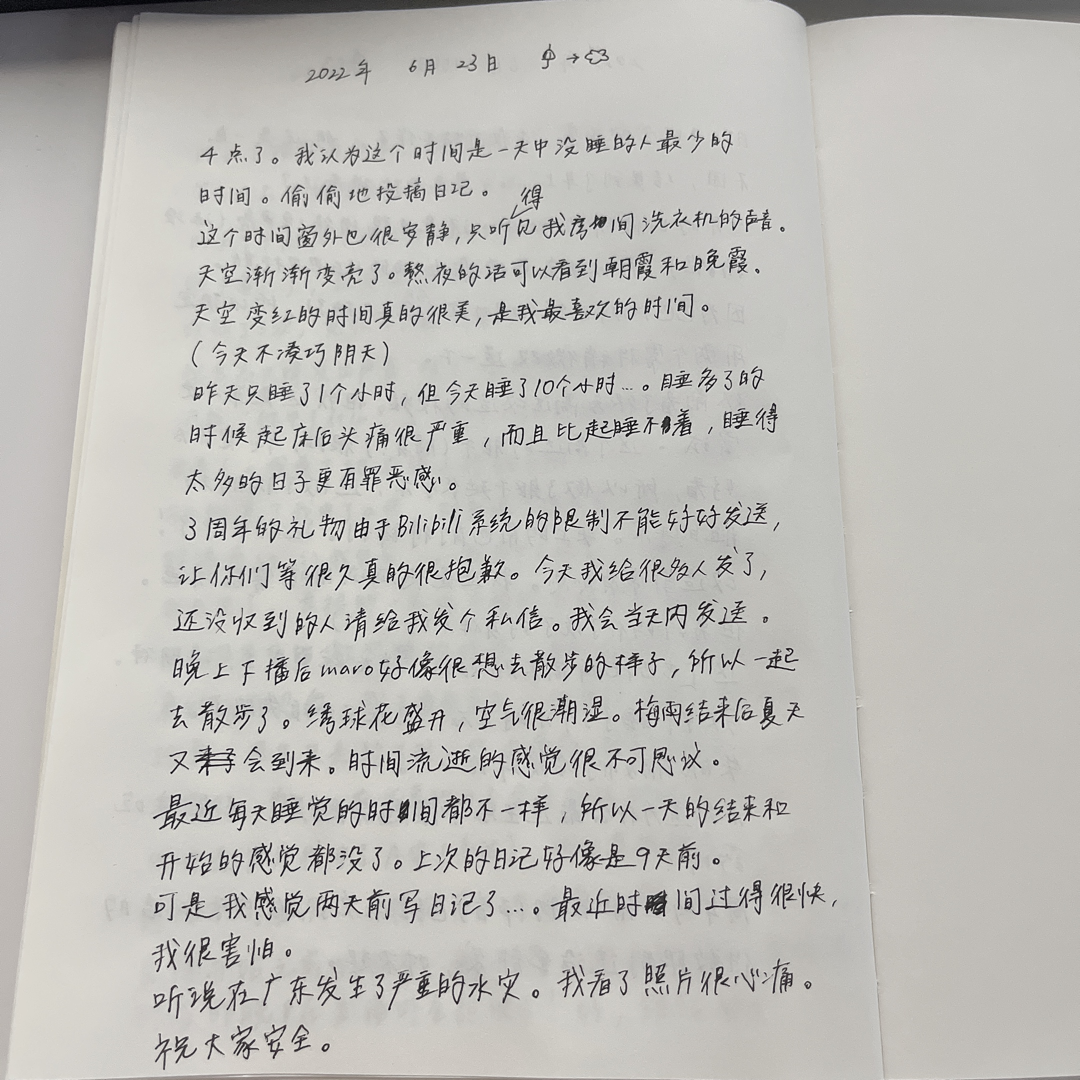 2022年 6月 23日 ☂→☁
4点了。我认为这个时间是一天中没睡的人最少的
时间。偷偷地投搞日记。
得
这个时间窗外也很安静,只听见我房间洗衣机的声音。
天空渐渐变亮了。熬夜的话可以看到朝霞和晚霞。
天空变红的时间真的很美,是我最喜欢的时间。
(今天不凑巧阴天)
昨天只睡了1个小时,但今天睡了10个小时…。睡多了的
时候起床后头痛很严重,而且比起睡不着,睡得
太多的日子更有罪恶感。
3周年的礼物由于Bilibili系统的限制不能好好发送,
让你们等很久真的很抱歉。今天我给很多人发了,
还没收到的人请给我发个私信。我会当天内发送。
晚上下播后maro好像很想去散步的样子,所以一起
去散步了。绣球花盛开,空气很潮湿。梅雨结束后夏天
又会到来。时间流逝的感觉很不可思议。
最近每天睡觉的时间都不一样,所以一天的结束和
开始的感觉都没了。上次的日记好像是9天前。
可是我感觉两天前写日记了…。最近时间过得很快,
我很害怕。
听说在广东发生了严重的水灾。我看了照片很心痛。
祝大家安全。